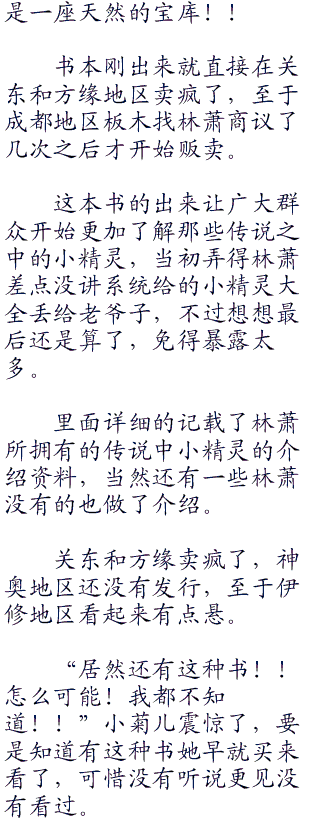 是一座天然的宝库！！
书本刚出来就直接在关
东和方缘地区卖疯了，至于
成都地区板木找林萧商议了
几次之后才开始贩卖。
这本书的出来让广大群
众开始更加了解那些传说之
中的小精灵，当初弄得林萧
差点没讲系统给的小精灵大
全丢给老爷子，不过想想最
后还是算了，免得暴露太
多。
里面详细的记载了林萧
所拥有的传说中小精灵的介
绍资料，当然还有一些林萧
没有的也做了介绍。
关东和方缘卖疯了，神
奥地区还没有发行，至于伊
修地区看起来有点悬。
“居然还有这种书！！
怎么可能！我都不知
道！！”小菊儿震惊了，要
是知道有这种书她早就买来
看了，可惜没有听说更见没
有看过。